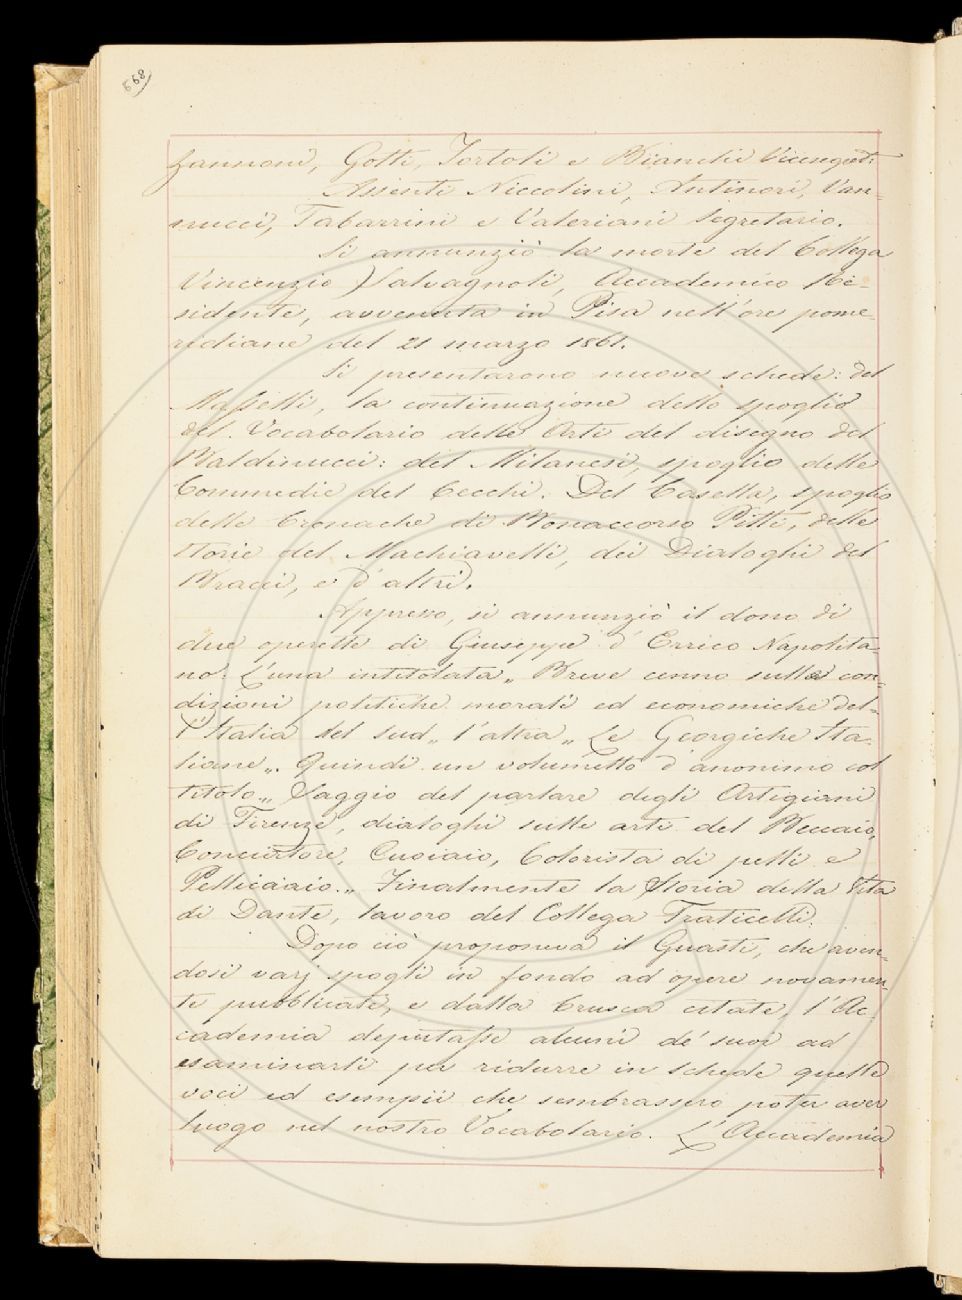 668
Zannoni, Gotti, Tortoli e Bianchi Vicesegret.
Assenti Niccolini, Antinori, Van-
nucci, Tabarrini e Valeriani Segretario.
Si annunziò la morte del Collega
Vincenzio Salvagnoli, Accademico Re-
sidente, avvenuta in Pisa nell'ore pome-
ridiane del 21 marzo 1861.
Si presentarono nuove schede: del
Masselli, la continuazione dello spoglio
del Vocabolario delle Arti del disegno del
Baldinucci: del Milanesi, spoglio delle
Commedie del Cecchi. Del Casella, spoglio
delle Cronache di Bonaccorso Pitti, delle
Storie del Machiavelli, dei Dialoghi del
Bracci, e d'altri.
Appresso, si annunziò il dono di
due operette di Giuseppe d'Errico Napolita-
no. L'una intitolata „ Breve cenno sulle con-
dizioni politiche morali ed economiche del-
l'Italia del sud „ l'altra „ Le Georgiche Ita-
liane „. Quindi un volumetto d'anonimo col
titolo „ Saggio del parlare degli Artigiani
di Firenze, dialoghi sulle arti del Beccaio,
Conciatore, Cuoiaio, Colorista di pelli e
Pellicciaio. „ Finalmente la Storia della Vita
di Dante, lavoro del Collega Fraticelli.
Dopo ciò proponeva il Guasti, che aven-
dosi varj spogli in fondo ad opere novamen-
te pubblicate, e dalla Crusca citate, l'Ac-
cademia deputasse alcuni de' suoi ad
esaminarli per ridurre in schede quelle
voci ed esempii che sembrassero poter aver
luogo nel nostro Vocabolario. L'Accademia